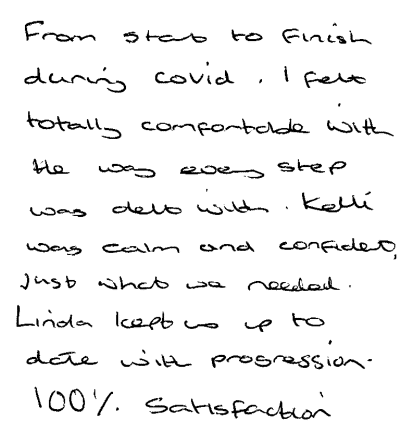 From start to Finish
during covid. I felt
totally comfortable with
the way every step
was delt with. Kelli
was calm and confident,
just what we needed.
Linda kept us up to
date with progression.
100%. Satisfaction